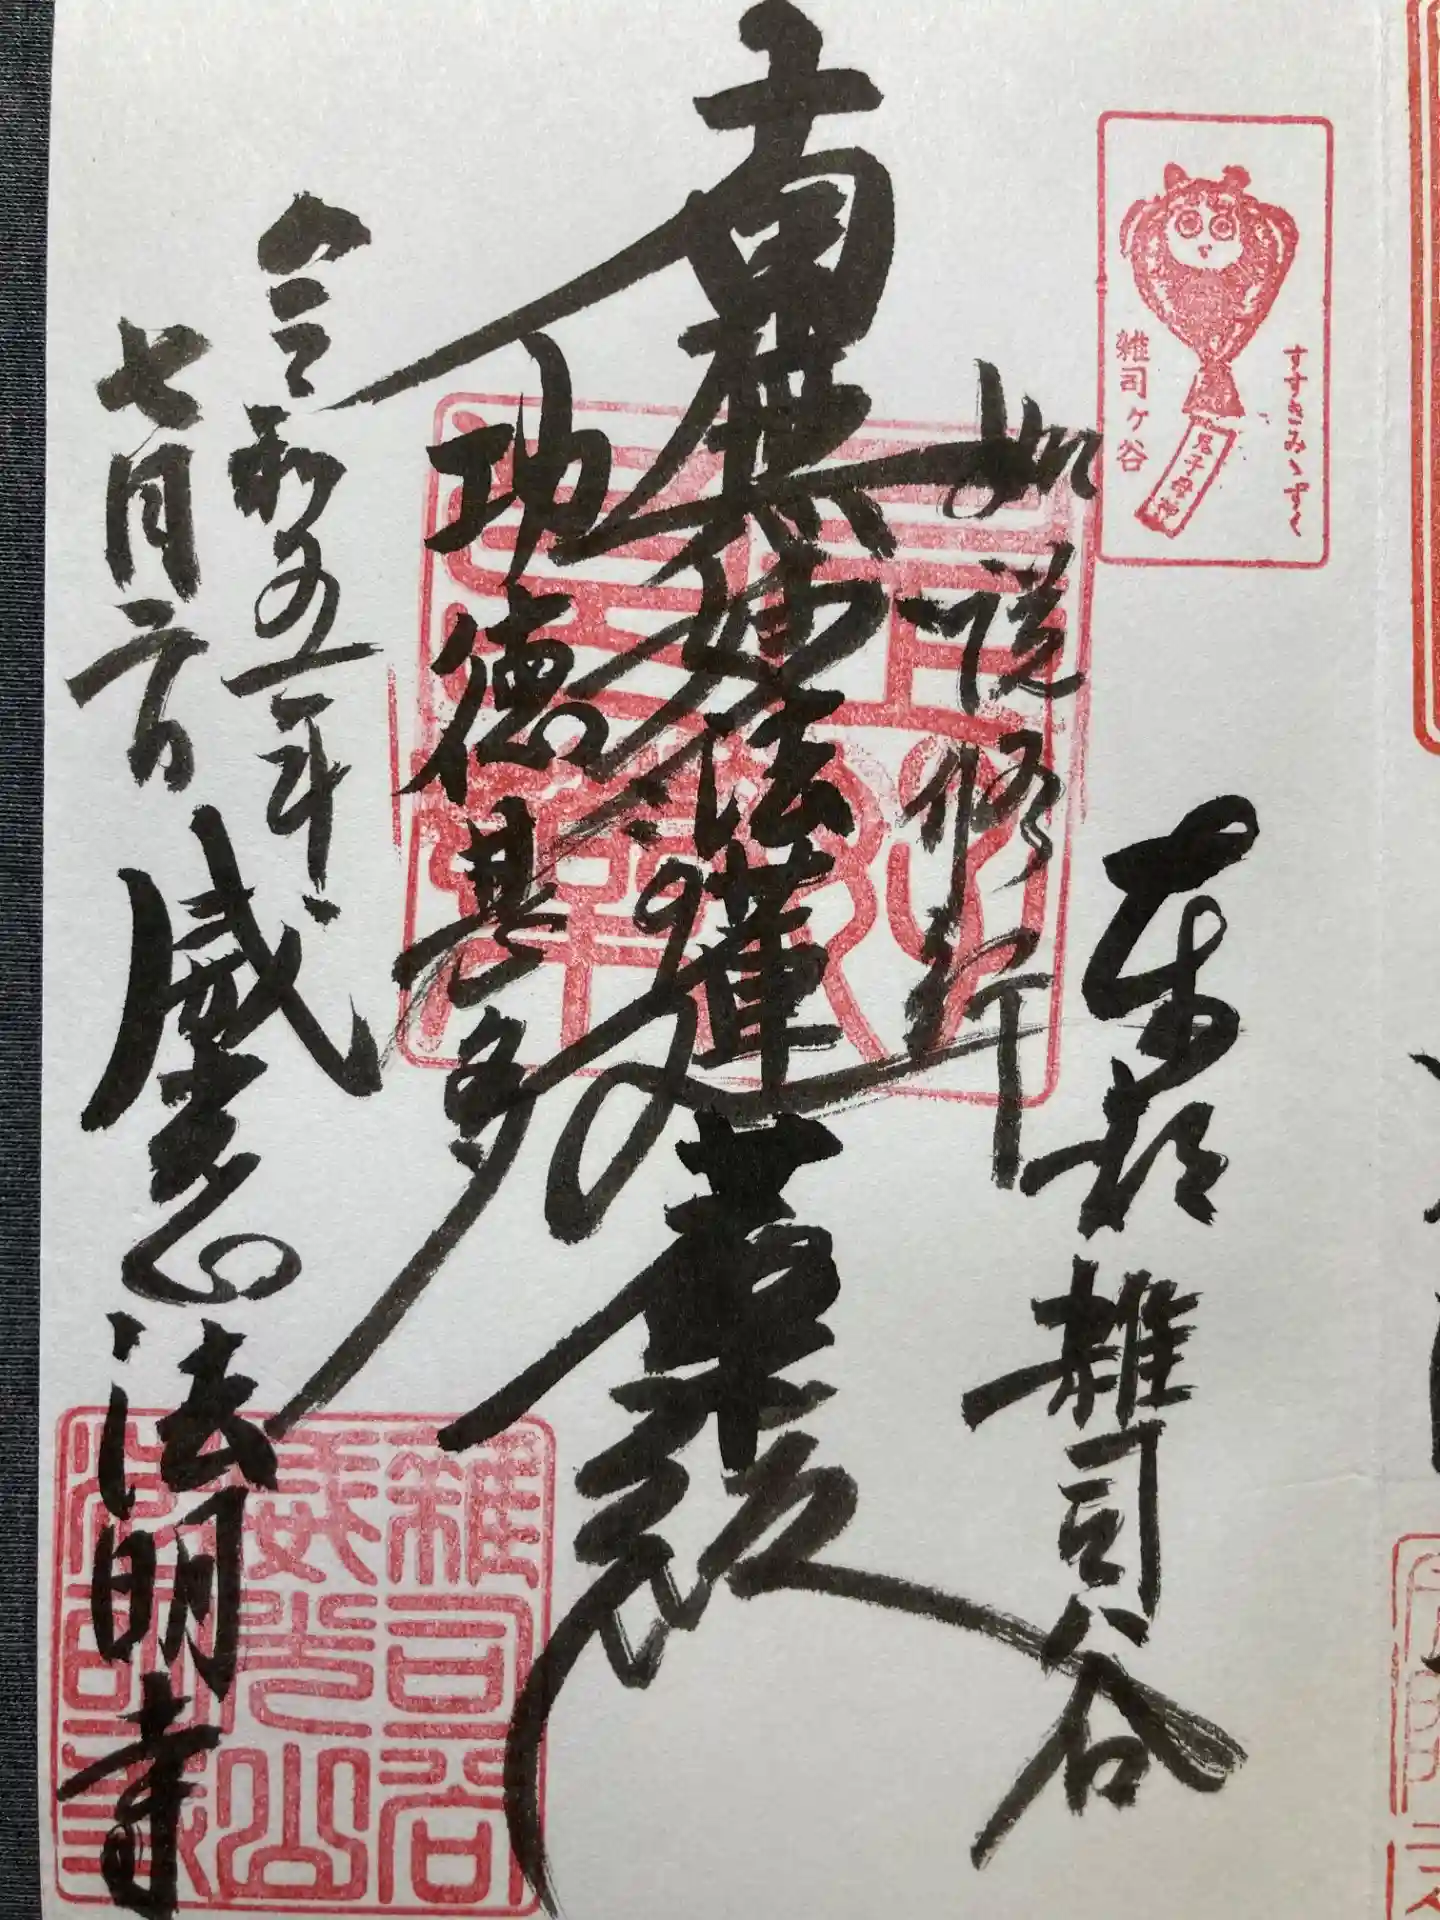 東都雑司谷
如説修行
南無妙法蓮華経
功徳甚多
令和五年
七月二日
威光山法明寺
すすきみゝずく
雑司ヶ谷
鬼子母神
雑司谷
威光山